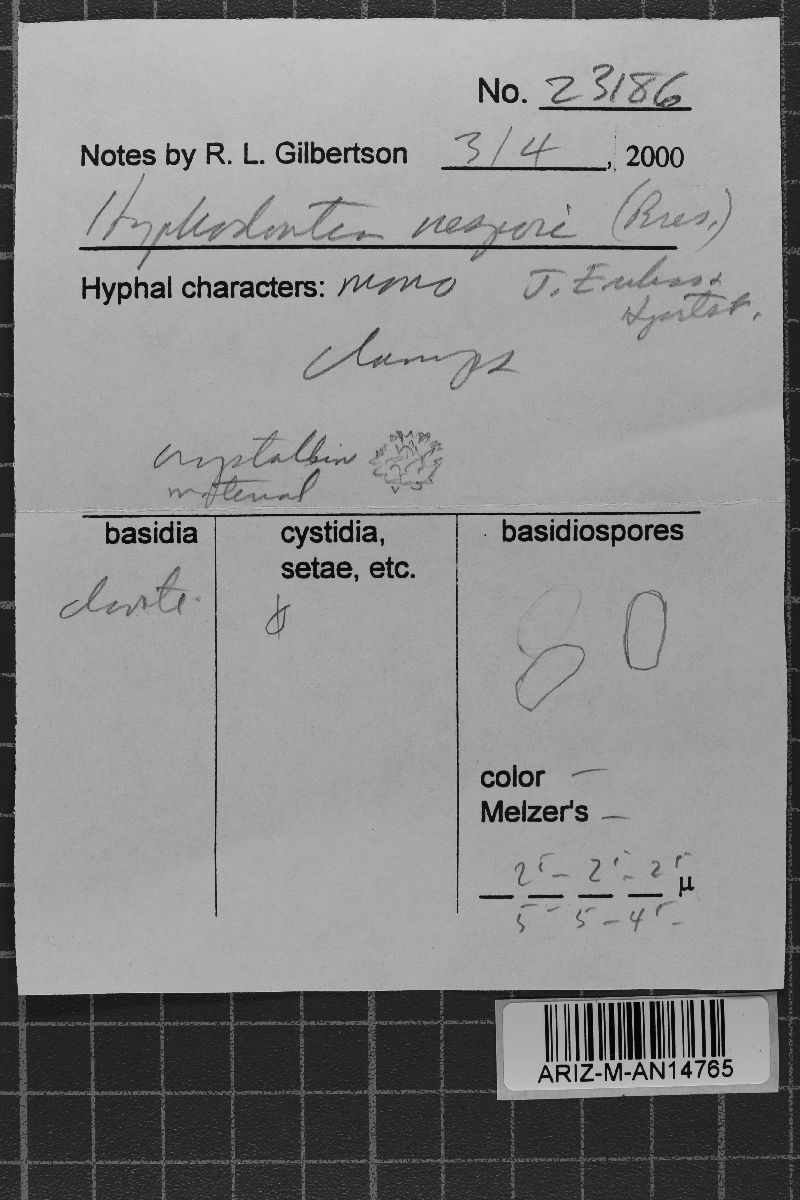 No. 23186
Notes by R. L. Gilbertson 3/4, 2000
Hyphodontia nespori (Bres.)
Hyphal characters: mono J. Erikss. &
Hjortst.
clamps
crystalline
material
basidia cystidia, basidiospores
setae, etc.
clavate
color —
Melzer's —
25- 25- 25 μ
5- 5- 45-
ARIZ-M-AN14765